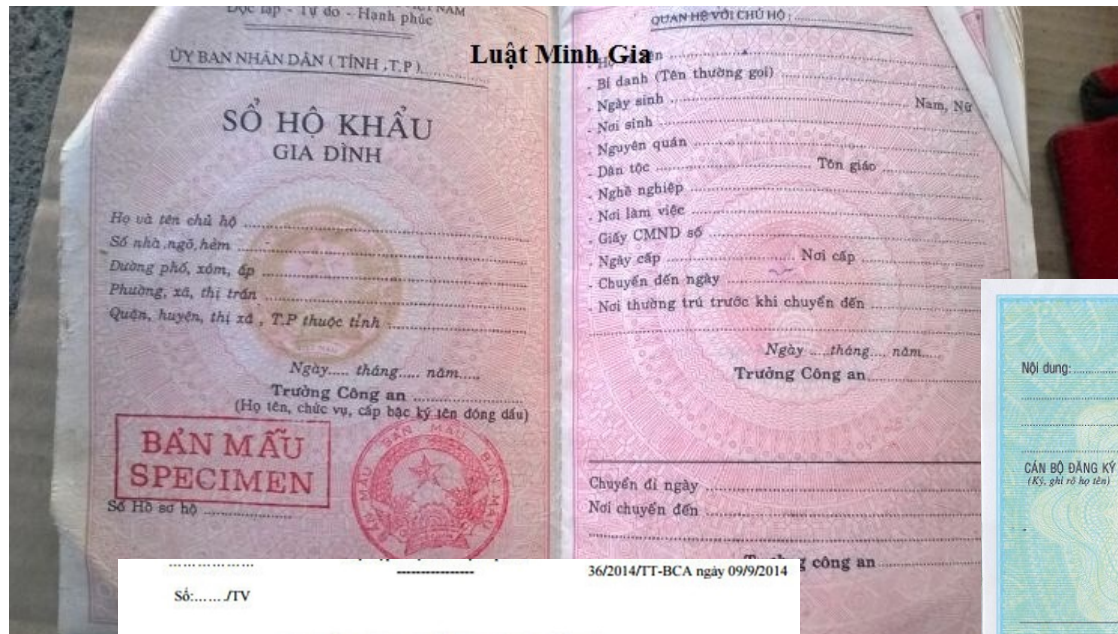 Độc lập - Tự do - Hạnh phúc
ỦY BAN NHÂN DÂN ( TỈNH , T.P )
SỔ HỘ KHẨU
GIA ĐÌNH
Họ và tên chủ hộ
Số nhà, ngõ, hẻm
Đường phố, xóm, ấp
Phường, xã, thị trấn
Quận, huyện, thị xã , T.P thuộc tỉnh
Ngày..... tháng..... năm.....
Trưởng Công an
(Họ tên, chức vụ, cấp bậc ký tên đóng dấu)
BẢN MẪU
SPECIMEN
BẢN MẪU BẢN MẪU
Số Hồ sơ hộ
Luật Minh Gia
QUAN HỆ VỚI CHỦ HỘ :
. Bí danh (Tên thường gọi)
. Ngày sinh Nam, Nữ
. Nơi sinh
. Nguyên quán
. Dân tộc Tôn giáo
. Nghề nghiệp
. Nơi làm việc
. Giấy CMND số
. Ngày cấp Nơi cấp
. Chuyển đến ngày
. Nơi thường trú trước khi chuyển đến
Ngày .....tháng.... năm.....
Trưởng Công an
Chuyển đi ngày
Nơi chuyển đến
công an
Nội dung:
CÁN BỘ ĐĂNG KÝ
(Ký, ghi rõ họ tên)
36/2014/TT-BCA ngày 09/9/2014
Số:...... /TV